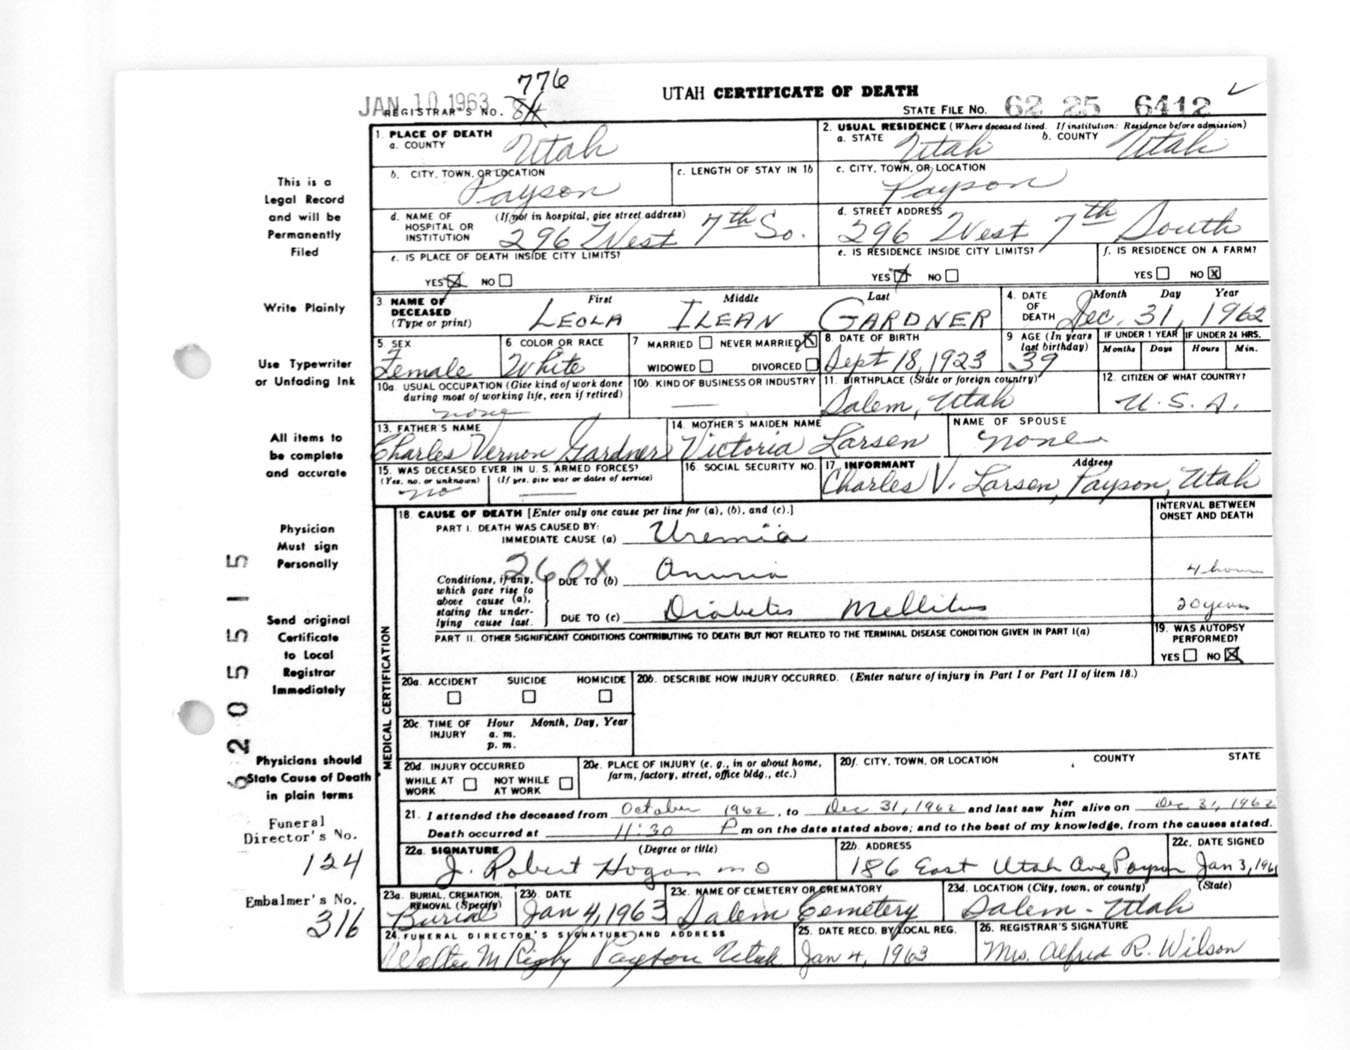 776
JAN 10 1963
REGISTRAR'S NO. 84
UTAH CERTIFICATE OF DEATH
STATE FILE NO. 62 25 6412
This is a
Legal Record
and will be
Permanently
Filed
Write Plainly
Use Typewriter
or Unfading Ink
All items to
be complete
and accurate
Physician
Must sign
Personally
Send original
Certificate
to Local
Registrar
Immediately
Physicians should
State Cause of Death
in plain terms
Funeral
Director's No.
124
Embalmer's No.
316
1. PLACE OF DEATH
a. COUNTY Utah
2. USUAL RESIDENCE (Where deceased lived. If institution: Residence before admission)
a. STATE Utah b. COUNTY Utah
b. CITY, TOWN, OR LOCATION Payson
c. LENGTH OF STAY IN 1b
c. CITY, TOWN, OR LOCATION Payson
d. NAME OF HOSPITAL OR INSTITUTION (If not in hospital, give street address) 296 West 7th So.
d. STREET ADDRESS 296 West 7th South
e. IS PLACE OF DEATH INSIDE CITY LIMITS?
YES NO
e. IS RESIDENCE INSIDE CITY LIMITS?
YES NO
f. IS RESIDENCE ON A FARM?
YES NO X
3. NAME OF DECEASED (Type or print) First Middle Last
LEOLA ILEAN GARDNER
4. DATE OF DEATH Month Day Year
Dec. 31, 1962
5 SEX Female
6 COLOR OR RACE White
7 MARRIED NEVER MARRIED X
WIDOWED DIVORCED
8. DATE OF BIRTH Sept 18, 1923
9 AGE (In years last birthday) 39
IF UNDER 1 YEAR Months Days
IF UNDER 24 HRS. Hours Min.
10a. USUAL OCCUPATION (Give kind of work done during most of working life, even if retired) none
10b. KIND OF BUSINESS OR INDUSTRY —
11. BIRTHPLACE (State or foreign country) Salem, Utah
12. CITIZEN OF WHAT COUNTRY? U.S.A.
13. FATHER'S NAME Charles Vernon Gardner
14. MOTHER'S MAIDEN NAME Victoria Larsen
NAME OF SPOUSE none
15. WAS DECEASED EVER IN U. S. ARMED FORCES?
(Yes, no, or unknown) (If yes, give war or dates of service)
no —
16. SOCIAL SECURITY NO.
17. INFORMANT Address
Charles V. Larsen, Payson, Utah
MEDICAL CERTIFICATION
18. CAUSE OF DEATH [Enter only one cause per line for (a), (b), and (c).]
INTERVAL BETWEEN ONSET AND DEATH
PART I. DEATH WAS CAUSED BY:
IMMEDIATE CAUSE (a) Uremia
260X
Conditions, if any, which gave rise to above cause (a), stating the underlying cause last.
DUE TO (b) Anuria 4 hours
DUE TO (c) Diabetis Mellitus 20 years
PART II. OTHER SIGNIFICANT CONDITIONS CONTRIBUTING TO DEATH BUT NOT RELATED TO THE TERMINAL DISEASE CONDITION GIVEN IN PART I(a)
19. WAS AUTOPSY PERFORMED?
YES NO X
20a. ACCIDENT SUICIDE HOMICIDE
20b. DESCRIBE HOW INJURY OCCURRED. (Enter nature of injury in Part I or Part II of item 18.)
20c. TIME OF INJURY Hour a. m. p. m. Month, Day, Year
20d. INJURY OCCURRED
WHILE AT WORK NOT WHILE AT WORK
20e. PLACE OF INJURY (e. g., in or about home, farm, factory, street, office bldg., etc.)
20f. CITY, TOWN, OR LOCATION COUNTY STATE
21. I attended the deceased from October 1962, to Dec 31, 1962 and last saw her him alive on Dec 31, 1962
Death occurred at 11:30 P m on the date stated above; and to the best of my knowledge, from the causes stated.
22a. SIGNATURE (Degree or title)
J. Robert Hogan MD
22b. ADDRESS
186 East Utah Ave, Payson
22c. DATE SIGNED
Jan 3, 196
23a. BURIAL, CREMATION, REMOVAL (Specify) Burial
23b. DATE Jan 4, 1963
23c. NAME OF CEMETERY OR CREMATORY Salem Cemetery
23d. LOCATION (City, town, or county) (State)
Salem - Utah
24. FUNERAL DIRECTOR'S SIGNATURE AND ADDRESS
Walter M Rigby Payson Utah
25. DATE RECD. BY LOCAL REG.
Jan 4, 1963
26. REGISTRAR'S SIGNATURE
Mrs. Alfred R. Wilson